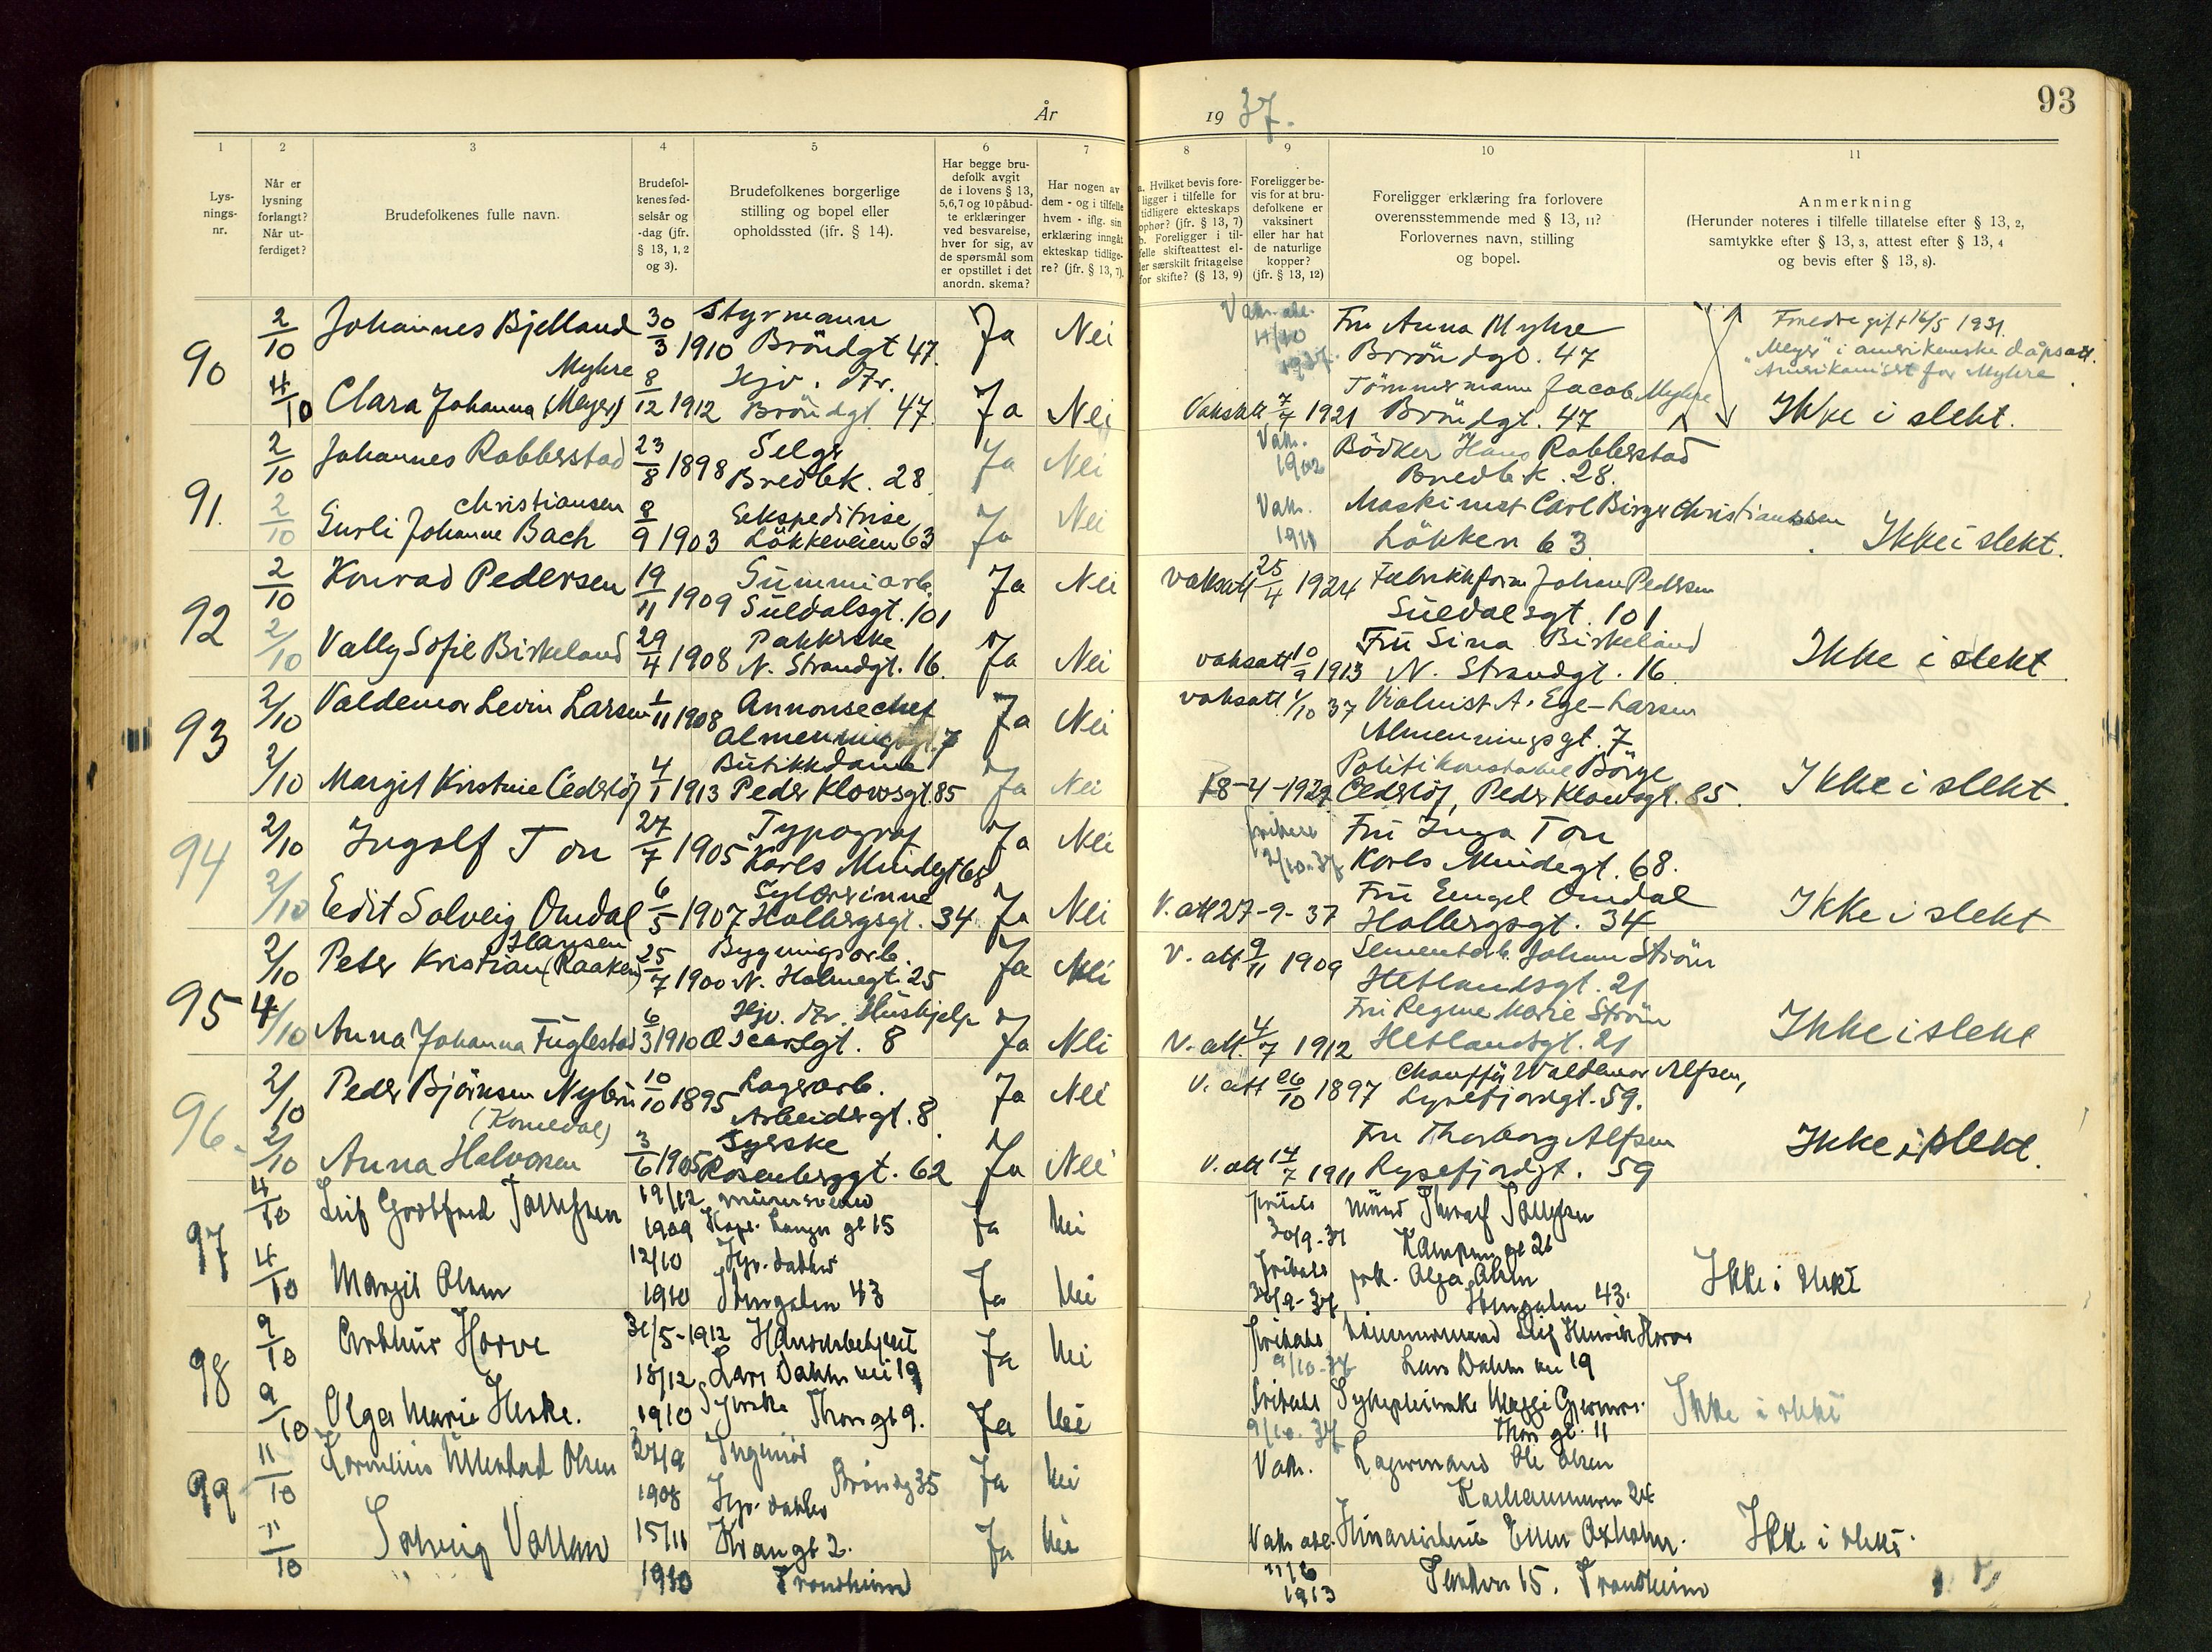 År
19 37.
93
1
2
3
4
5
6
7
8
9
10
11
Lys-
nings-
nr.
Når er
lysning
forlangt?
Når ut-
ferdiget?
Brudefolkenes fulle navn.
Brudefol-
kenes fød-
selsår og
-dag (jfr.
§ 13, 1, 2
og 3).
Brudefolkenes borgerlige
stilling og bopel eller
opholdssted (jfr. § 14).
Har begge bru-
defolk avgit
de i lovens § 13,
5, 6, 7 og 10 påbud-
te erklæringer
ved besvarelse,
hver for sig, av
de spørsmål som
er opstillet i det
anordn. skema?
Har nogen av
dem - og i tilfelle
hvem - iflg. sin
erklæring inngått
ekteskap tidlige-
re? (jfr. § 13, 7).
a. Hvilket bevis fore-
ligger i tilfelle for
tidligere ekteskaps
ophør? (jfr. § 13, 7)
b. Foreligger i til-
felle skifteattest el-
ler særskilt fritagelse
for skifte? (§ 13, 9)
Foreligger be-
vis for at bru-
defolkene er
vaksinert
eller har hat
de naturlige
kopper?
(jfr. § 13, 12)
Foreligger erklæring fra forlovere
overensstemmende med § 13, 11?
Forlovernes navn, stilling
og bopel.
Anmerkning
(Herunder noteres i tilfelle tillatelse efter § 13, 2,
samtykke efter § 13, 3, attest efter § 13, 4
og bevis efter § 13, 8).
90
2/10 Johannes Bjelland 30/3 1910 Styrmann
Bröndgt 47. Ja Nei
Fru Anna Myhre
Bröndgt. 47
gift 16/5 1931.
"Meyer" i amerikanske dåpsatt.
for Myhre
4/10 Clara Johanna (Meyer) Myhre 8/12 1912 Hjv. dtr.
Bröndgt. 47. Ja Nei
Vaksatt 7/7 1921 Tömmermann Jacob Myhre
Bröndgt. 47
Ikke i slekt.
91.
2/10 Johannes Rabberstad 23/8 1898 Selger
Bredbk. 28 Ja Nei
Vak. 1902 Bödker Hans Rabberstad
Bredbk. 28.
2/10 Gurli Johanne Bach Christiansen 8/9 1903 Ekspeditrise
Lökkeveien 63 Ja Nei
Vak. 1911 Maskinist Carl Birger Christiansen
Lökken 63
Ikke i slekt.
92
2/10 Konrad Pedersen 19/11 1909 Gummiarb.
Suldalsgt. 101 Ja Nei
vaksatt 25/4 1924 Fabrikkform Johan Pedersen
Suldalsgt. 101
2/10 Vally Sofie Birkeland 29/4 1908 Pakkerske
N. Strandgt. 16. Ja Nei
vaksatt 10/9 1913 Fru Sina Birkeland
N. Strandgt. 16
Ikke i slekt
93
2/10 Valdemar Levin Larsen 1/11 1908 Annonsechef
Almenningsgt. 7 Ja Nei
vaksatt 1/10 37 Violinist A. Ege-Larsen
Almenningsgt. 7
2/10 Margit Kristine Cederlöf 4/1 1913 Butikkdame
Peder Klowsgt. 85 Ja Nei
18-4-1929 Politikonstabel Börge
Cederlöf, Peder Klowsgt. 85.
Ikke i slekt.
94
2/10 Ingolf Ton 27/7 1905 Typograf
Karls Mindegt 68 Ja Nei
2/10-37 Fru Inga Ton
Karls Mindegt. 68.
2/10 Edit Solveig Omdal 6/5 1907 Sylærerinne
Holbergsgt. 34 Ja Nei
V. att 27-9-37 Fru Engel Omdal
Holbergsgt. 34
Ikke i slekt
95
2/10 Peter Kristian (Raaken) Hansen 25/7 1900 Bygningsarb.
N. Holmegt. 25 Ja Nei
V. att 9/11 1909 Sementarb. Johan Ström
Hetlandsgt. 21
4/10 Anna Johanna Fuglestad 6/3 1910 Hjv. dtr. Hushjelp
Oscarsgt. 8 Ja Nei
V. att. 4/7 1912 Fru Regine Marie Ström
Hetlandsgt. 21
Ikke i slekt
96.
2/10 Peder Björnsen Nybru 10/10 1895 Lagerarb.
Arbeidergt. 8. Ja Nei
V. att 26/10 1897 Chauffør Waldemar Alfsen,
Lysefjordgt. 59.
2/10 Anna Halvorsen 3/6 1905 Syerske
Rosenberggt. 62 Ja Nei
V. att 14/7 1911 Fru Thorborg Alfsen
Rysefjordgt. 59
Ikke i slekt.
97
4/10 Leif Godtfred 19/12 1909 murersvend
gt 15 Ja Nei
30/9-37
gt 26
4/10 Margit Olsen 12/10 1910 Hjv. datter
43 Ja Nei
30/9-37 Olga Olsen
43.
Ikke i slekt
98
9/10 Arthur Horve 31/5-1912
Lars Dahles vei 19 Ja Nei
9/10-37 Leif Henrik Horve
Lars Dahles vei 19
9/10 Olga Marie Heske. 18/12 1910 Syerske
Thorsgt 9. Ja Nei
9/10. 37
Thorsgt. 11
Ikke i slekt
99
11/10 Kornelius Ullestad Olsen 27/9 1908 Ingeniör
Bröndg 35 Ja Nei
Vak. Lagermand Ole Olsen
Karlhammeren 24
11/10 Solveig 15/11 1910 Hjv. datter
gt 2.
Trondheim Ja Nei
Vak att. 11/6 1913 Ellen
15. Trondheim
Ikke i slekt.